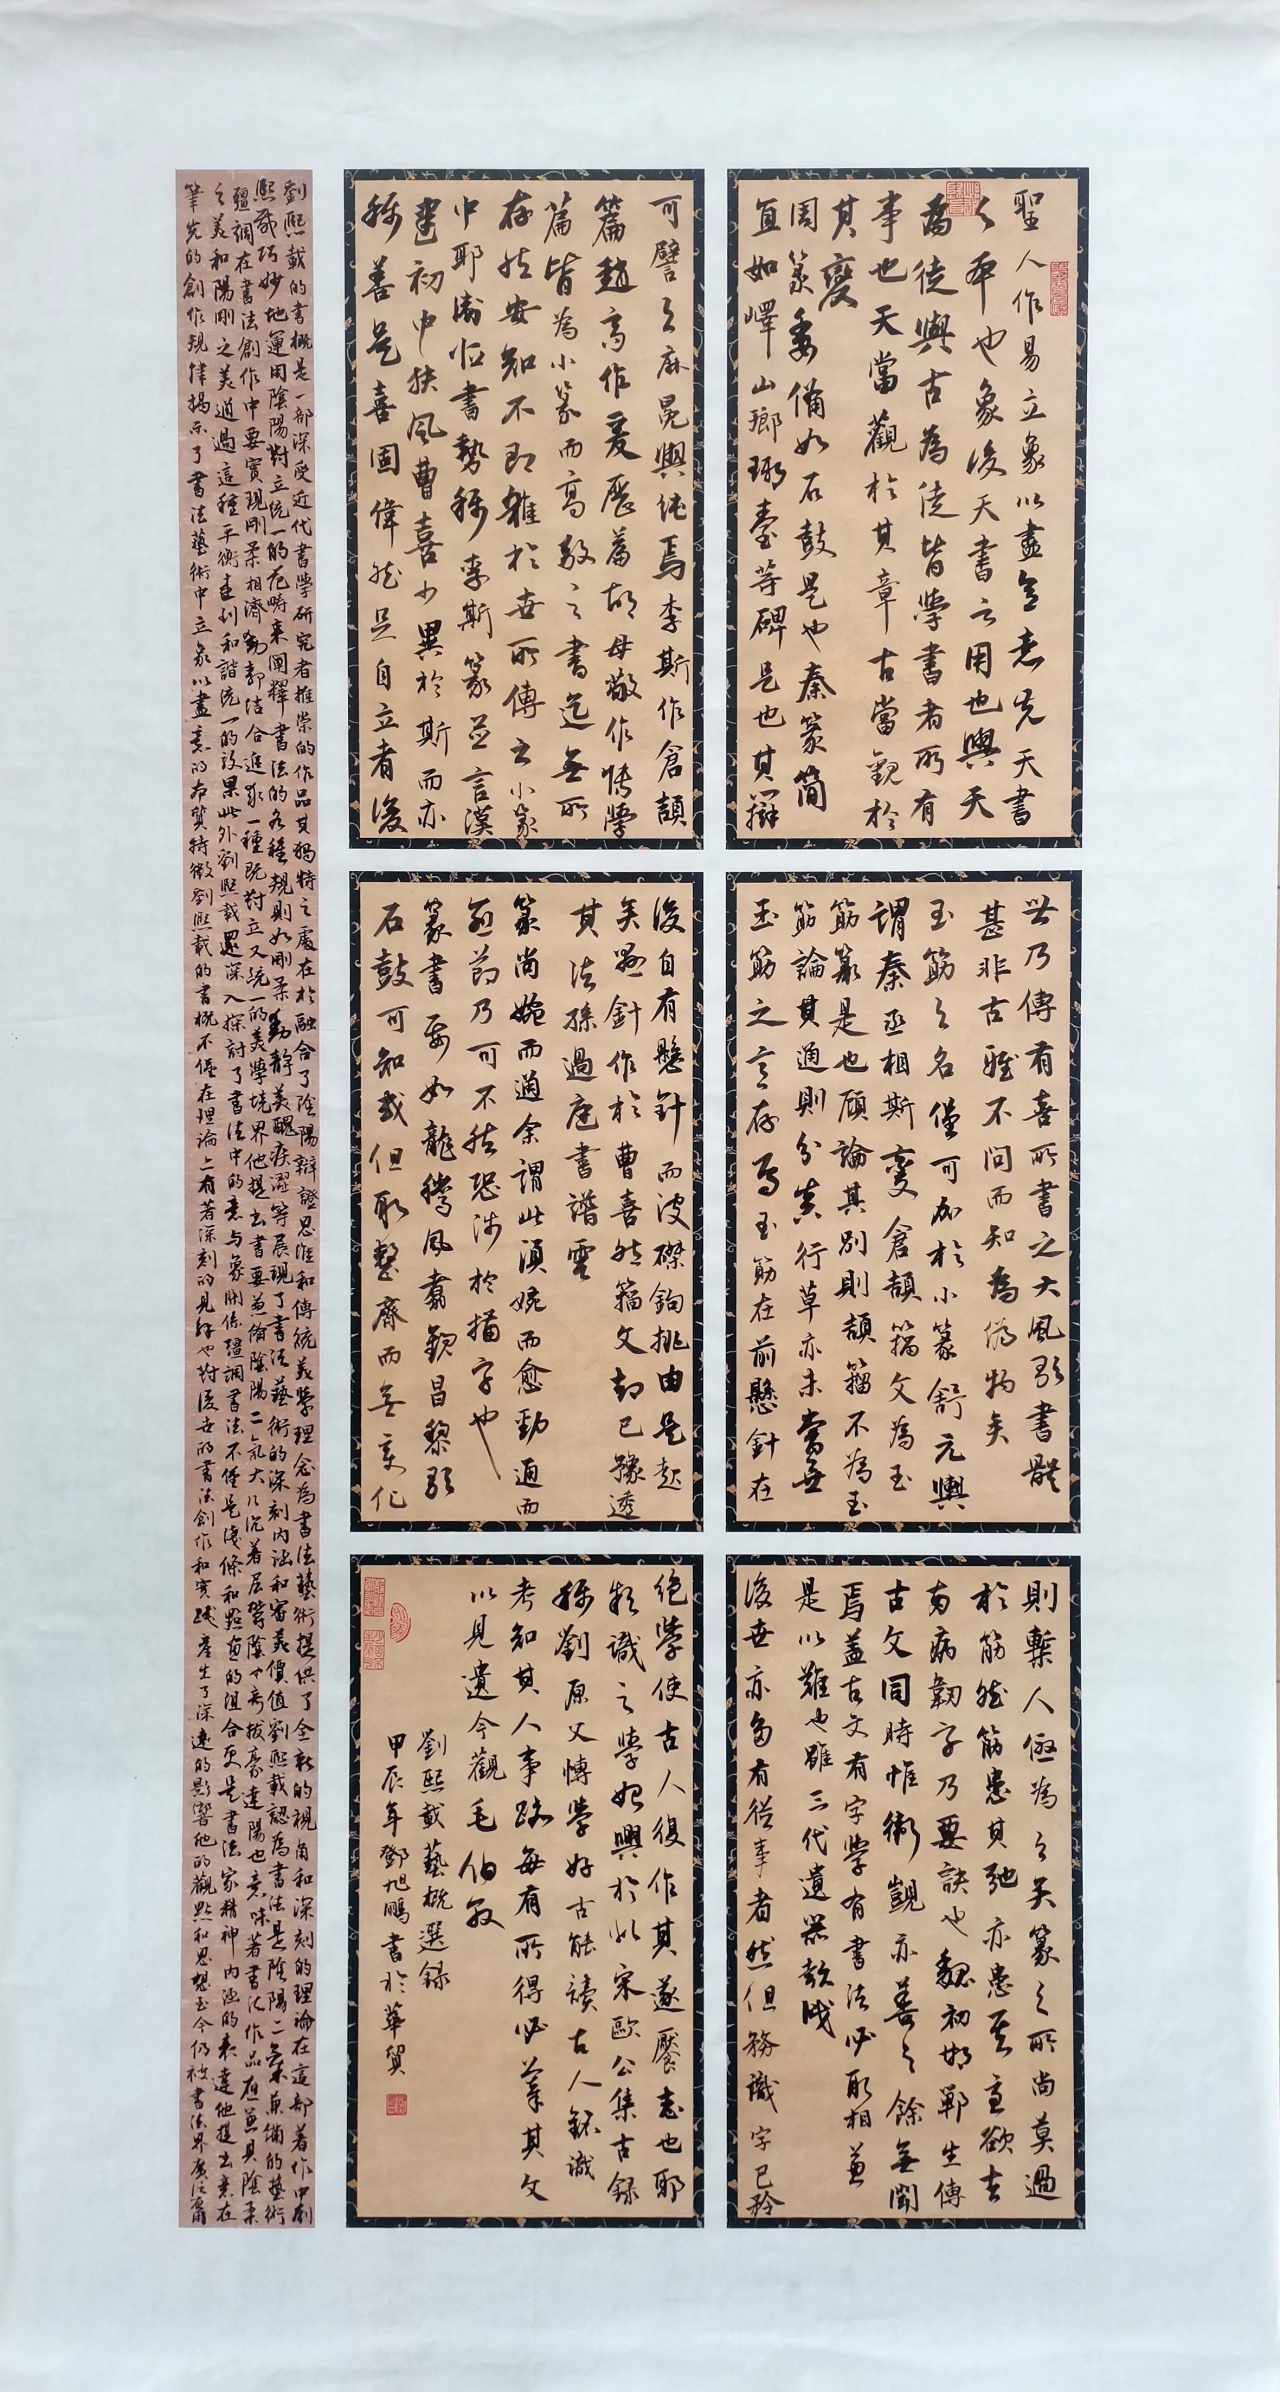 聖人作易立象以盡意意先天書
之本也象後天書之用也與天
為徒與古為徒皆學書者所有
事也天當觀於其章古當觀於
其變
周篆委備如石鼓是也秦篆簡
直如嶧山瑯琊臺等碑是也其辯
可譬之麻冕與純焉李斯作倉頡
篇趙高作爰歷篇胡母敬作博學
篇皆為小篆而高敬之書迄無所
存然安知不即雜於世所傳之小篆
中耶衛恒書勢稱李斯篆並言漢
建初中扶風曹喜少異於斯而亦
稱善是喜固偉然足自立者後
世乃傳有喜所書之大風歌書體
甚非古雅不問而知為偽物矣
玉筯之名僅可加於小篆舒元輿
謂秦丞相斯變倉頡籀文為玉
筯篆是也顧論其別則頡籀不為玉
筯論其通則分真行草亦未嘗無
玉筯之意存焉玉筯在前懸針在
後自有懸針而波磔鉤挑由是起
矣懸針作於曹喜然籀文却已豫透
其法孫過庭書譜雲
篆尚婉而通余謂此須婉而愈勁通而
愈節乃可不然恐涉於描字也
篆書要如龍騰鳳翥觀昌黎歌
石鼓可知或但取整齊而無變化
則槧人優為之矣篆之所尚莫過
於筋然筋患其弛亦患其急欲去
兩病韌字乃要訣也魏初邯鄲生傳
古文同時惟衛覬亦善之餘無聞
焉蓋古文有字學有書法必取相兼
是以難也雖三代遺器款識
後世亦多有從事者然但務識字已矜
絕學使古人復作其遂饜志也耶
款識之學始興於北宋歐公集古錄
稱劉原父博學好古能讀古人銘識
考知其人事跡每有所得必摹其文
以見遺今觀毛伯敦
劉熙載藝概選錄
甲辰年鄧旭鵬書於華貿
劉熙載的書概是一部深受近代書學研究者推崇的作品其獨特之處在於融合了陰陽辯證思維和傳統美學理念為書法藝術提供了全新的視角和深刻的理論在這部著作中劉
熙載巧妙地運用陰陽對立統一的范疇來闡釋書法的各種規則如剛柔動靜美醜疾澀等展現了書法藝術的深刻內涵和審美價值劉熙載認為書法是陰陽二氣兼備的藝術
強調在書法創作中要實現剛柔相濟動静結合追求一種既對立又統一的美學境界他提出書要兼備陰陽二氣大凡沉著屈鬱陰也奇拔豪達陽也意味著書法作品應兼具陰柔
之美和陽剛之美通過這種平衡達到和諧統一的效果此外劉熙載還深入探討了書法中的意与象關係強調書法不僅是淺條和點畫的組合更是書法家精神內涵的表達他提出意在
筆先的創作規律揭示了書法藝術中立象以盡意的本質特徵劉熙載的書概不僅在理論上有著深刻的見解也對後世的書法創作和實踐產生了深遠的影響他的觀點和思想至今仍被書法界廣泛